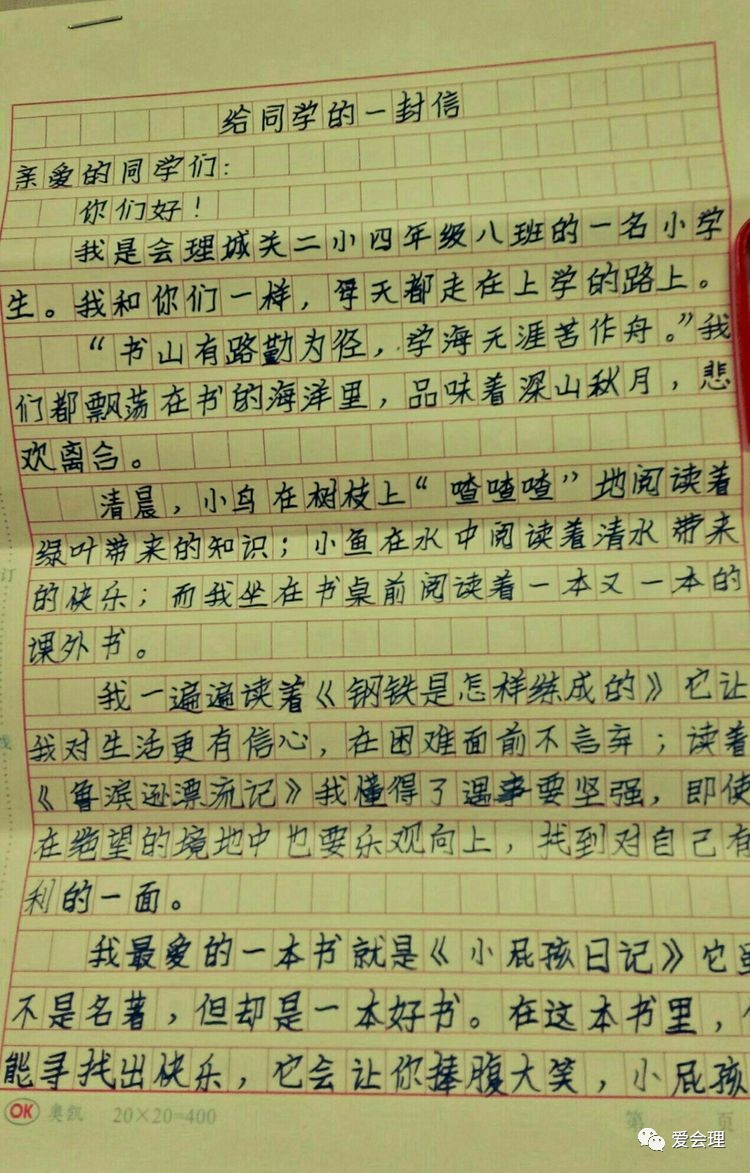 给同学的一封信
亲爱的同学们：
你们好！
我是会理城关二小四年级八班的一名小学
生。我和你们一样，每天都走在上学的路上。
“书山有路勤为径，学海无涯苦作舟。”我
们都飘荡在书的海洋里，品味着深山秋月，悲
欢离合。
清晨，小鸟在树枝上“喳喳喳”地阅读着
绿叶带来的知识；小鱼在水中阅读着清水带来
的快乐；而我坐在书桌前阅读着一本又一本的
课外书。
我一遍遍读着《钢铁是怎样练成的》它让
我对生活更有信心，在困难面前不言弃；读着
《鲁滨逊漂流记》我懂得了遇事要坚强，即使
在绝望的境地中也要乐观向上，找到对自己有
利的一面。
我最爱的一本书就是《小屁孩日记》它虽
不是名著，但却是一本好书。在这本书里，
能寻找出快乐，它会让你捧腹大笑，小屁孩
OK 奥凯 20×20=400 第 页
爱会理
订
线